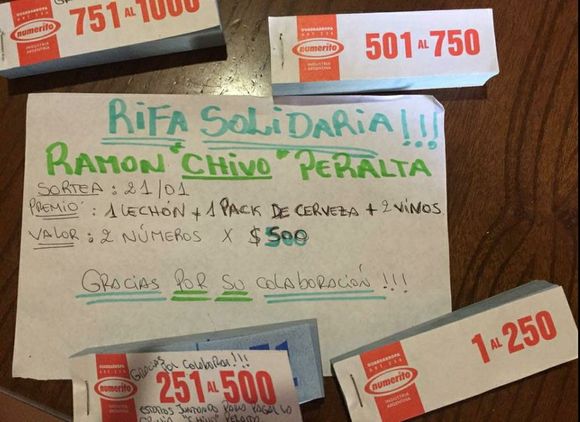 GUARDARROPA
ART. 250
numerito
INDUSTRIA
ARGENTINA
751 AL 1000
GUARDARROPA
numerito
INDUSTRIA
ARGENTINA
501 AL 750
RIFA SOLIDARIA!!!
RAMON "CHIVO" PERALTA
SORTEA : 21/01
PREMIO : 1 LECHÓN + 1 PACK DE CERVEZA + 2 VINOS
VALOR : 2 NÚMEROS X $500
GRACIAS POR SU COLABORACIÓN !!!
GRACIAS
POR COLABORAR!!!
numerito
251 AL 500
ESTAMOS JUNTANDO PARA PAGAR LO
"CHIVO" PERALTA
GUARDARROPA
numerito
INDUSTRIA
ARGENTINA
1 AL 250